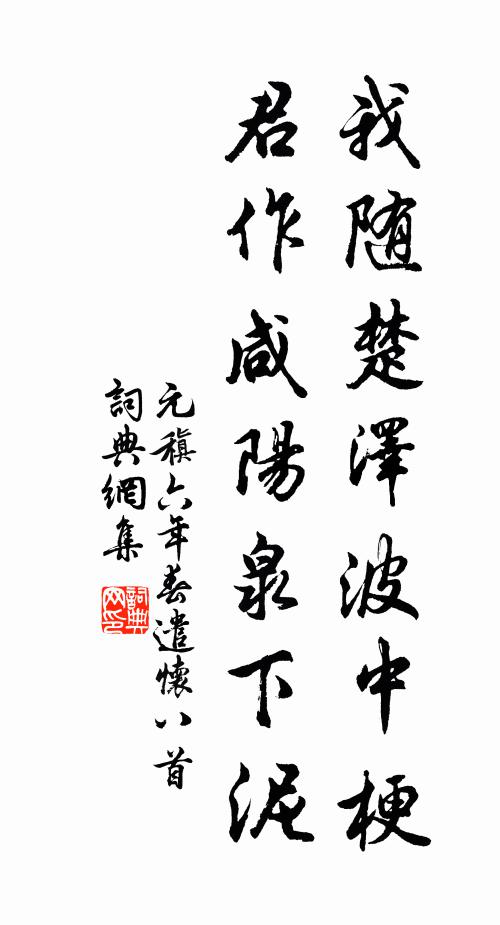 我随楚澤波中梗
君作咸陽泉下泥
元稹六年春遣懷八首
詞典網集
詞典网印